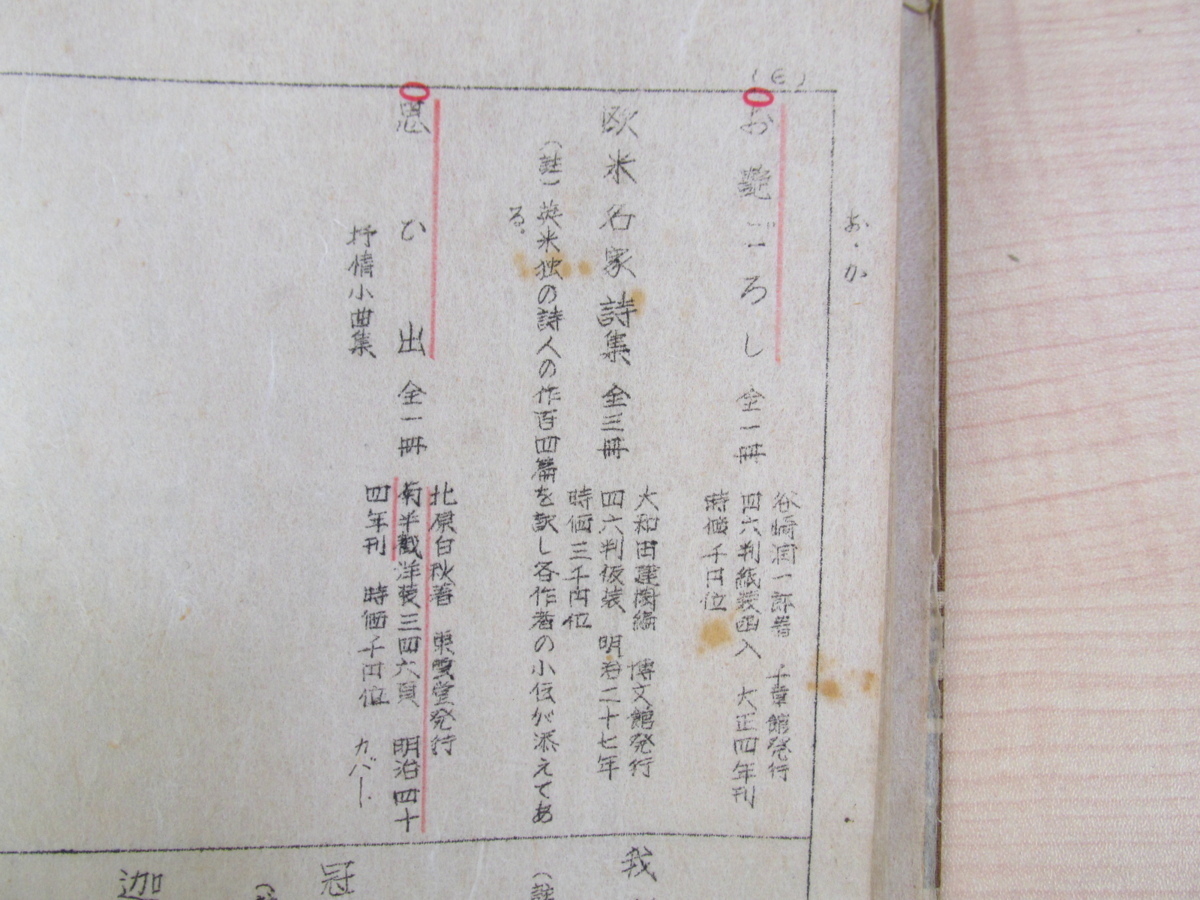 お・か
お艶ごろし 全一冊
谷崎潤一郎著 千章館発行
四六判紙装函入 大正四年刊
時価千円位
欧米名家詩集 全三冊
大和田建樹編 博文館発行
四六判仮装 明治二十七年
時価三千円位
(註) 英米独の詩人の作百四篇を訳し各作者の小伝が添えてあ
る。
思ひ出 全一冊
抒情小曲集
北原白秋著 東雲堂発行
菊半截洋装三四六頁 明治四十
四年刊 時価千円位 カバー
我
(註
冠
迦